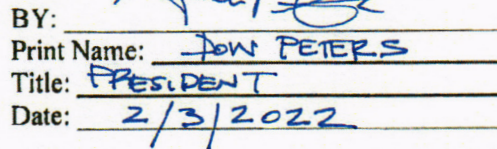 BY:
Print Name: DOW PETERS
Title: PRESIDENT
Date: 2/3/2022